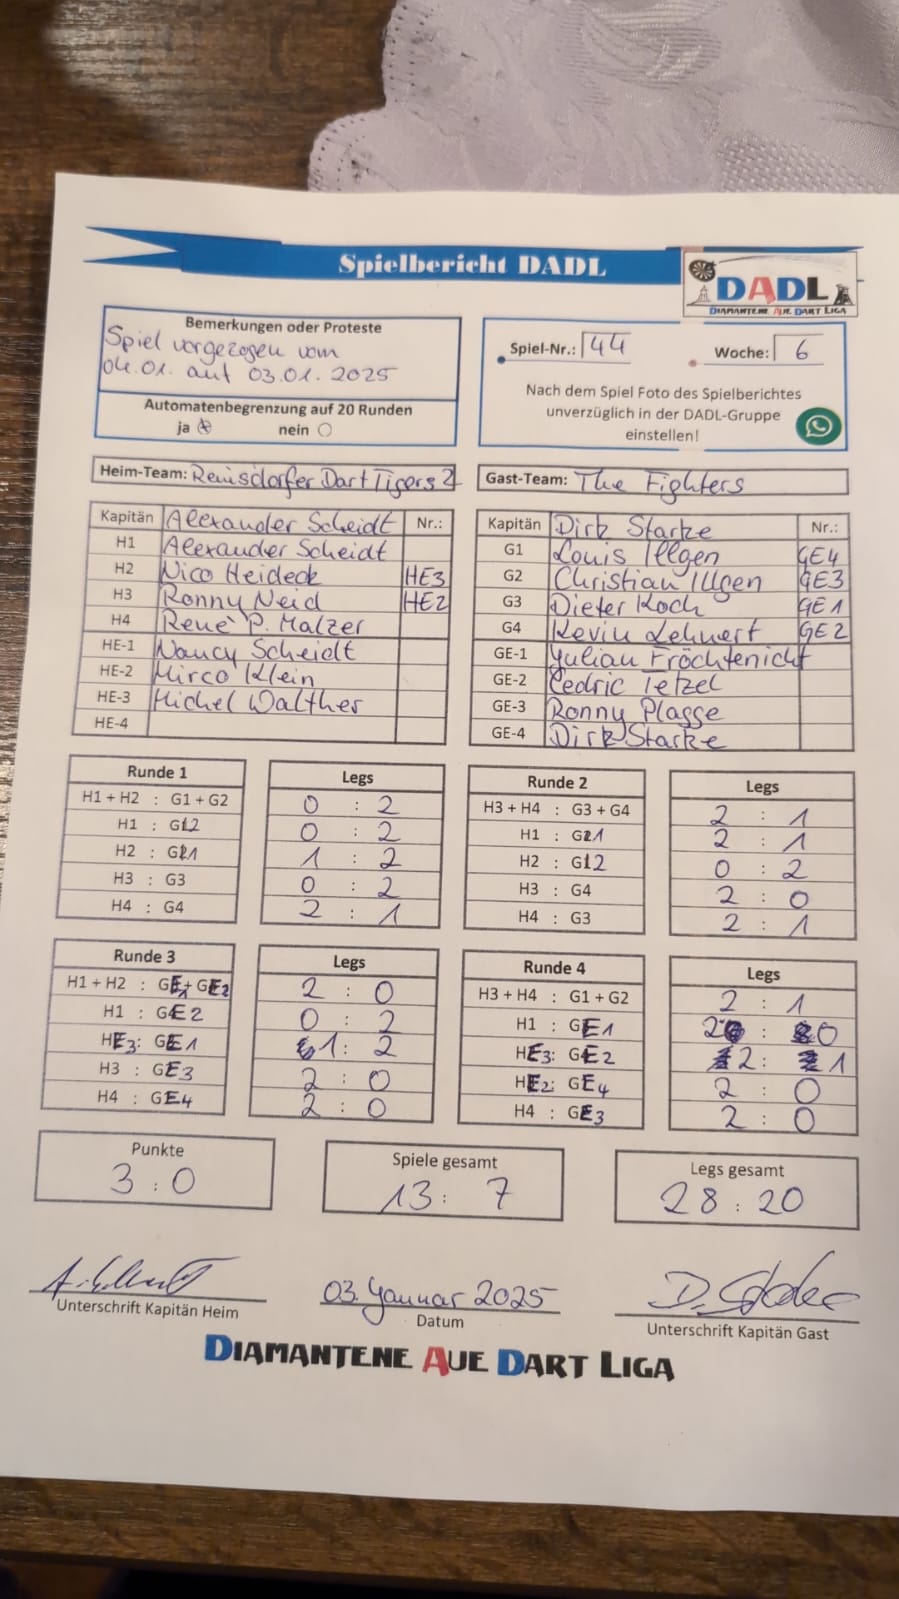 Spielbericht DADL
DADL
DIAMANTENE AUE DART LIGA
Bemerkungen oder Proteste
Spiel vorgezogen vom
04.01. auf 03.01.2025
Automatenbegrenzung auf 20 Runden
ja nein
Spiel-Nr.: 44 Woche: 6
Nach dem Spiel Foto des Spielberichtes
unverzüglich in der DADL-Gruppe
einstellen!
Heim-Team: Reinsdorfer Dart Tigers 2
Kapitän Alexander Scheidt Nr.:
H1 Alexander Scheidt
H2 Nico Heideck HE3
H3 Ronny Neid HE2
H4 René P. Malzer
HE-1 Nancy Scheidt
HE-2 Mirco Klein
HE-3 Michel Walther
HE-4
Gast-Team: The Fighters
Kapitän Dirk Starke Nr.:
G1 Louis Illgen GE4
G2 Christian Illgen GE3
G3 Dieter Koch GE1
G4 Kevin Lehnert GE2
GE-1 Julian Fröchtenicht
GE-2 Cedric Tetzel
GE-3 Ronny Plagge
GE-4 Dirk Starke
Runde 1 Legs
H1 + H2 : G1 + G2 0 : 2
H1 : G2 0 : 2
H2 : G1 1 : 2
H3 : G3 0 : 2
H4 : G4 2 : 1
Runde 2 Legs
H3 + H4 : G3 + G4 2 : 1
H1 : G1 2 : 1
H2 : G2 0 : 2
H3 : G4 2 : 0
H4 : G3 2 : 1
Runde 3 Legs
H1 + H2 : GE1 + GE2 2 : 0
H1 : GE2 0 : 2
HE3 : GE1 1 : 2
H3 : GE3 2 : 0
H4 : GE4 2 : 0
Runde 4 Legs
H3 + H4 : G1 + G2 2 : 1
H1 : GE1 2 : 0
HE3 : GE2 2 : 1
HE2 : GE4 2 : 0
H4 : GE3 2 : 0
Punkte
3 : 0
Spiele gesamt
13 : 7
Legs gesamt
28 : 20
Unterschrift Kapitän Heim
03. Januar 2025
Datum
Unterschrift Kapitän Gast
DIAMANTENE AUE DART LIGA